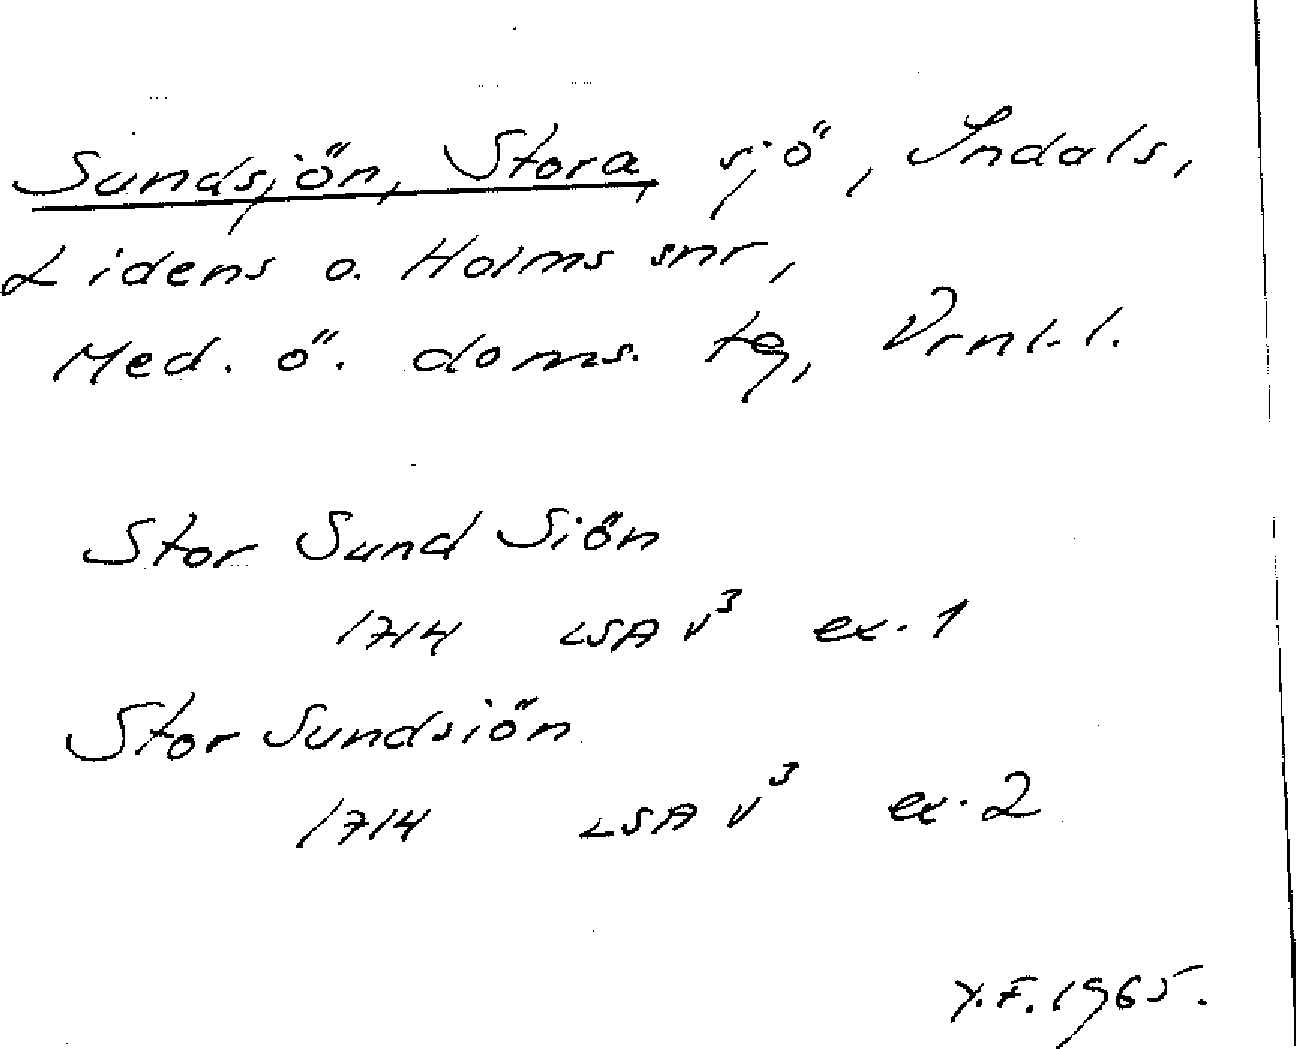 Sundsjön, Stora, sjö, Indals,
Lidens o. Holms snr,
Med. ö. doms. tg, Vrnl. l.
Stor Sund Siön
1714 LSA V³ ex. 1
Stor Sundsiön
1714 LSA V³ ex. 2
Y.F. 1965.